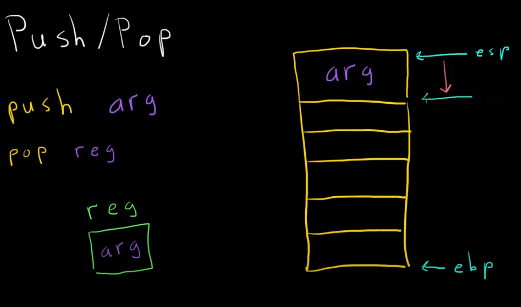 Push/Pop
push arg
pop reg
reg
arg
arg
esp
ebp